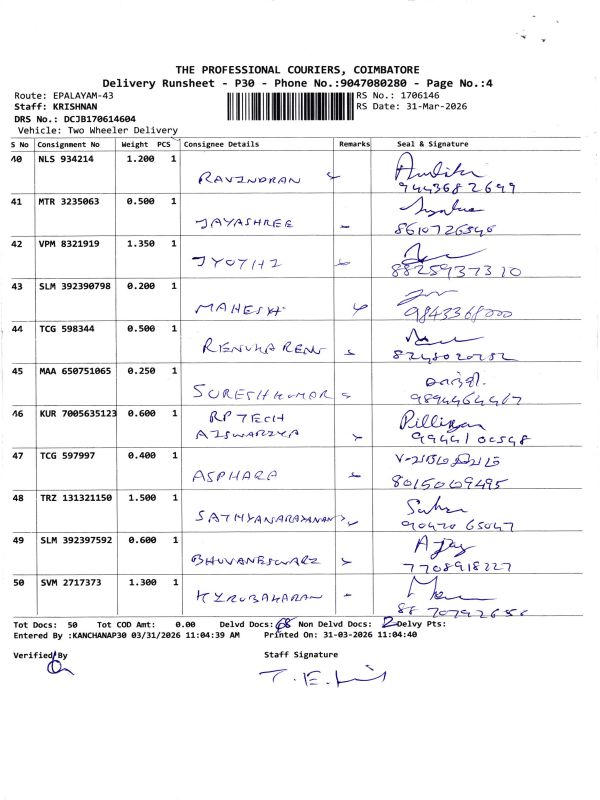 THE PROFESSIONAL COURIERS, COIMBATORE
Delivery Runsheet - P30 - Phone No.:9047080280 - Page No.:4
Route: EPALAYAM-43 RS No.: 1706146
Staff: KRISHNAN RS Date: 31-Mar-2026
DRS No.: DCJB170614604
Vehicle: Two Wheeler Delivery
S No Consignment No Weight PCS Consignee Details Remarks Seal & Signature
40 NLS 934214 1.200 1
RAVINDRAN 9443682699
41 MTR 3235063 0.500 1
JAYASHREE 8610726546
42 VPM 8321919 1.350 1
JYOTHI 8825937310
43 SLM 392390798 0.200 1
MAHESH 9843368000
44 TCG 598344 0.500 1
RENUKA RENU
45 MAA 650751065 0.250 1
SURESH KUMAR 9894464467
46 KUR 7005635123 0.600 1
RP TECH
AISWARIYA
47 TCG 597997 0.400 1
ASPHARA 8015009495
48 TRZ 131321150 1.500 1
SATHYANARAYANAN
49 SLM 392397592 0.600 1 AJay
BHUVANESWARI 7708918227
50 SVM 2717373 1.300 1
KYRUBAHARAN
Tot Docs: 50 Tot COD Amt: 0.00 Delvd Docs: Non Delvd Docs: 2 Delvy Pts:
Entered By :KANCHANAP30 03/31/2026 11:04:39 AM Printed On: 31-03-2026 11:04:40
Verified By Staff Signature